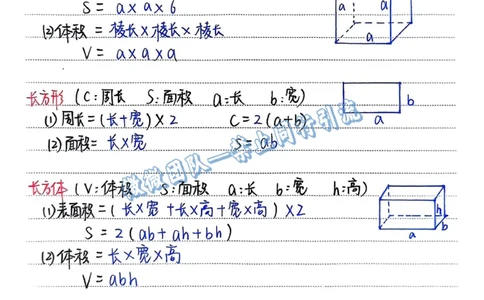 S = a×a×6
(2)体积 = 棱长×棱长×棱长
V = a×a×a
a
a
a
长方形 (C:周长 S:面积 a:长 b:宽)
(1)周长=(长+宽)×2 C=2(a+b)
(2)面积=长×宽 S=ab
b
a
微微团队—禁止同行引流
长方体 (V:体积 S:面积 a:长 b:宽 h:高)
(1)表面积=(长×宽+长×高+宽×高)×2
S = 2(ab+ah+bh)
(2)体积=长×宽×高
V=abh
h
b
a